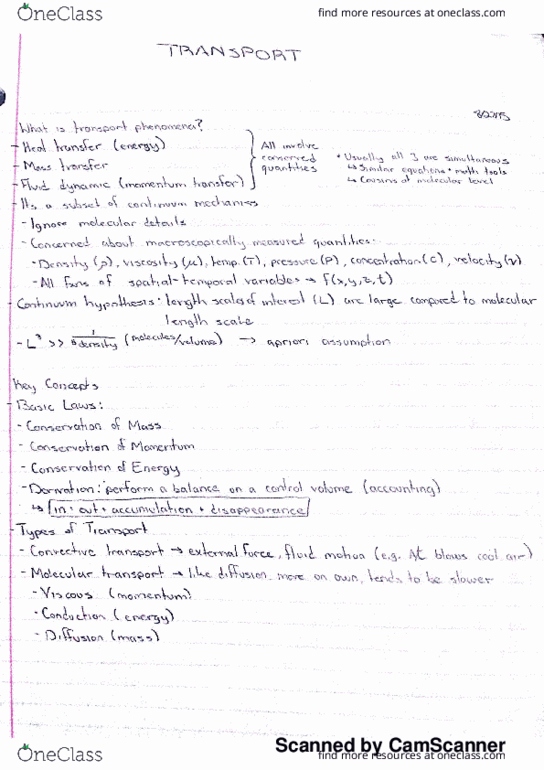 OneClass
find more resources at oneclass.com
TRANSPORT
What is transport phenomena?
- Heat transfer (energy)
- Mass transfer
- Fluid dynamic (momentum transfer)
All involve
conserved
quantities
• Usually all 3 are simultaneous
↳ Similar equations + math tools
↳ Cousins at molecular level
- It's a subset of continuum mechanics
- Ignore molecular details
- Concerned about macroscopically measured quantities:
- Density (ρ), viscosity (μ), temp. (T), pressure (P), concentration (C), velocity (v)
- All fxns of spatial-temporal variables → f(x,y,z,t)
- Continuum hypothesis: length scales of interest (L) are large compared to molecular
length scale
- L³ >> 1/density (molecules/volume) → apriori assumption
Key Concepts
- Basic Laws:
- Conservation of Mass
- Conservation of Momentum
- Conservation of Energy
- Derivation: perform a balance on a control volume (accounting)
↳ in = out + accumulation + disappearance
- Types of Transport
- Convective transport → external force, fluid motion (e.g. AC blows cool air)
- Molecular transport → like diffusion, more on own, tends to be slower
- Viscous (momentum)
- Conduction (energy)
- Diffusion (mass)
Scanned by CamScanner
OneClass
find more resources at oneclass.com